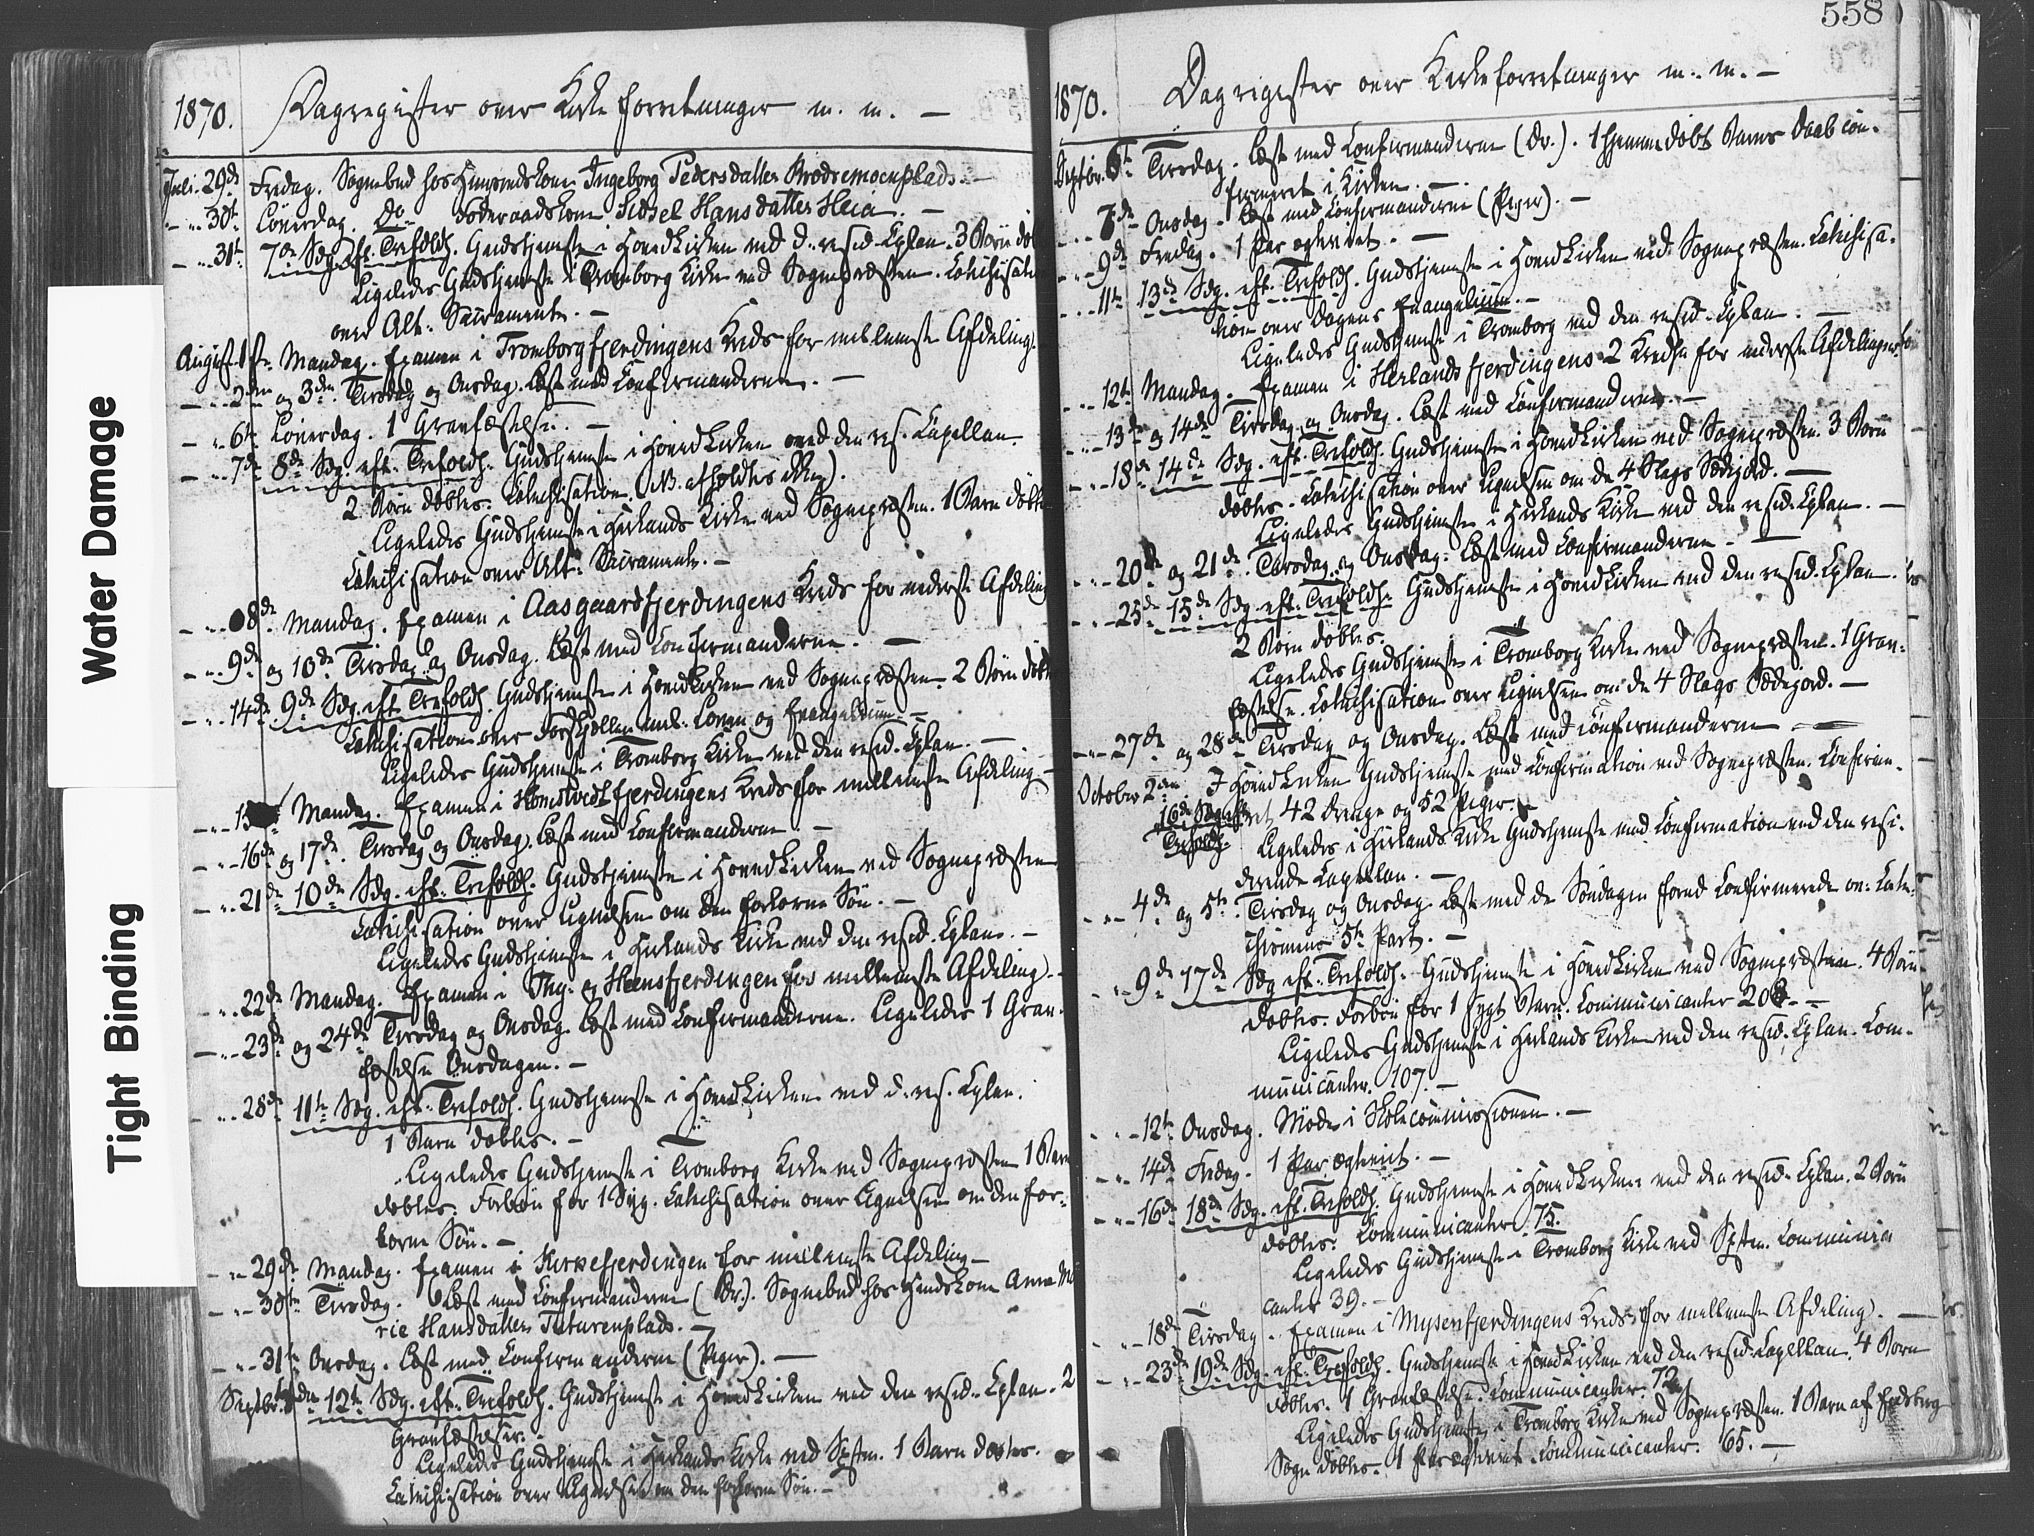 Water Damage
Tight Binding
1870. Dagregister over Kirkeforretninger m. m. –
Juli. 29de Fredag. Sognebud hos Huusmandskone Ingeborg Pedersdatter Brødremoenplads. –
" 30te Löverdag. Do Föderaadskone Sidsel Hansdatter Heia. –
" 31te 7de Sdg. eft. Trefoldh. Gudstjeneste i Hovedkirken ved d. resid. Cplan. 3 Börn döb
Ligeledes Gudstjeneste i Tromborg Kirke ved Sognepræsten. Catechisati
over Alt: Sacramente. –
August 1ste Mandag. Examen i Tromborgfjerdingens Kreds for mellemste Afdeling.
" 2den og 3die Tirsdag og Onsdag. Læst med Confirmanderne. –
" 6te Löverdag. 1 Gravfæstelse. –
" 7de 8de Sdg. eft. Trefoldh. Gudstjeneste i Hovedkirken ved den res. Capellan.
2 Börn döbtes. Catechisation. (NB. afholdtes ikke).
Ligeledes Gudstjeneste i Herlands Kirke ved Sognepræsten. 1 Barn döbte
Catechisation over Alt: Sacramente. –
" 8de Mandag. Examen i Aasgaardsfjerdingens Kreds for nederste Afdeling
" 9de og 10de Tirsdag og Onsdag. Læst med Confirmanderne. –
" 14de 9de Sdg. eft. Trefoldh. Gudstjeneste i Hovedkirken ved Sognepræsten. 2 Börn döbt
Catechisation over Forskjellen mel. Loven og Evangelium. –
Ligeledes Gudstjeneste i Tromborg Kirke ved den resid. Cplan. –
" 15 Mandag. Examen i Homstvedtfjerdingens Kreds for mellemste Afdeling –
" 16de og 17de Tirsdag og Onsdag. Læst med Confirmanderne. –
" 21de 10de Sdg. eft. Trefoldh. Gudstjeneste i Hovedkirken ved Sognepræsten
Catechisation over Lignelsen om den forlorne Sön. –
Ligeledes Gudstjeneste i Herlands Kirke ved den resid. Cplan. –
" 22de Mandag. Examen i Thy- og Heensfjerdingen for mellemste Afdeling. –
" 23de og 24de Tirsdag og Onsdag. Læst med Confirmanderne. Ligeledes 1 Grav-
fæstelse Onsdagen. –
" 28de 11te Sdg. eft. Trefoldh. Gudstjeneste i Hovedkirken ved d. res. Cplan.
1 Barn döbtes. –
Ligeledes Gudstjeneste i Tromborg Kirke ved Sognepræsten 1 Barn
döbtes. Forbön for 1 Syg. Catechisation over Lignelsen om den for-
lorne Sön. –
" 29de Mandag. Examen i Kirkefjerdingen for mellemste Afdeling –
" 30te Tirsdag. Læst med Confirmanderne (Dr.). Sognebud hos Huuskone Anne Ma
rie Hansdatter Tuturenplads. –
" 31te Onsdag. Læst med Confirmanderne (Piger). –
Septbr. 12te Sdg. eft. Trefoldh. Gudstjeneste i Hovedkirken ved den resid. Cplan. 2
Gravfæstelser. –
Ligeledes Gudstjeneste i Herlands Kirke ved Spsten. 1 Barn döbtes.
Catechisation over Lignelsen om den forlorne Sön. –
558
1870. Dagregister over Kirkeforretninger m. m. –
Septbr. 6te Tirsdag. Læst med Confirmanderne (Dr.). 1 hjemmedöbt Barns Daab con-
firmeret i Kirken. –
" 7de Onsdag. Læst med Confirmanderne (Piger). –
" 9de Fredag. 1 Par ægteviet. –
" 11te 13de Sdg. eft. Trefoldh. Gudstjeneste i Hovedkirken ved Sognepræsten. Catechisa-
tion over Dagens Evangelium. –
Ligeledes Gudstjeneste i Tromborg ved den resid. Cplan. –
" 12te Mandag. Examen i Herlandsfjerdingens 2 Kredse for nederste Afdelinger.
" 13de og 14de Tirsdag og Onsdag. Læst med Confirmanderne. –
" 18de 14de Sdg. eft. Trefoldh. Gudstjeneste i Hovedkirken ved Sognepræsten. 3 Börn
döbtes. Catechisation over Lignelsen om de 4 Slags Sædejord. –
Ligeledes Gudstjeneste i Herlands Kirke ved den resid. Cplan. –
" 20de og 21de Tirsdag og Onsdag. Læst med Confirmanderne. –
" 25de 15de Sdg. eft. Trefoldh. Gudstjeneste i Hovedkirken ved den resid. Cplan.
2 Börn döbtes.
Ligeledes Gudstjeneste i Tromborg Kirke ved Sognepræsten. 1 Grav-
fæstelse. Catechisation over Lignelsen om de 4 Slags Sædejord. –
" 27de og 28de Tirsdag og Onsdag. Læst med Confirmanderne –
October 2den I Hovedkirken Gudstjeneste med Confirmation ved Sognepræsten. Confirme-
16de Sdg. eft. Trefoldh. ret 42 Drenge og 52 Piger. –
Ligeledes i Herlands Kirke Gudstjeneste med Confirmation ved den resi-
derende Capellan. –
" 4de og 5te Tirsdag og Onsdag. Læst med de Söndagen forud Confirmerede over Cate-
chismens 5te Part. –
" 9de 17de Sdg. eft. Trefoldh. Gudstjeneste i Hovedkirken ved Sognepræsten. 4 Börn
döbtes. Forbön for 1 sygt Barn. Communicanter 206. –
Ligeledes Gudstjeneste i Herlands Kirke ved den resid. Cplan. Com-
municanter. 107. –
" 12te Onsdag. Möde i Skolecommissionen. –
" 14de Fredag. 1 Par ægteviet. –
" 16de 18de Sdg. eft. Trefoldh. Gudstjeneste i Hovedkirken ved den resid. Cplan. 2 Börn
döbtes. Communicanter 75.
Ligeledes Gudstjeneste i Tromborg Kirke ved Spsten. Communi
canter 39. –
" 18de Tirsdag. Examen i Mysenfjerdingens Kreds for mellemste Afdeling. –
" 23de 19de Sdg. eft. Trefoldh. Gudstjeneste i Hovedkirken ved den resid. Capellan. 4 Börn
döbtes. 1 Gravfæstelse. Communicanter. 72.
Ligeledes Gudstjeneste i Tromborg Kirke ved Sognepræsten. 1 Barn af Eidsberg
Sogn döbtes. 1 Par ægteviet. Communicanter. 65. –